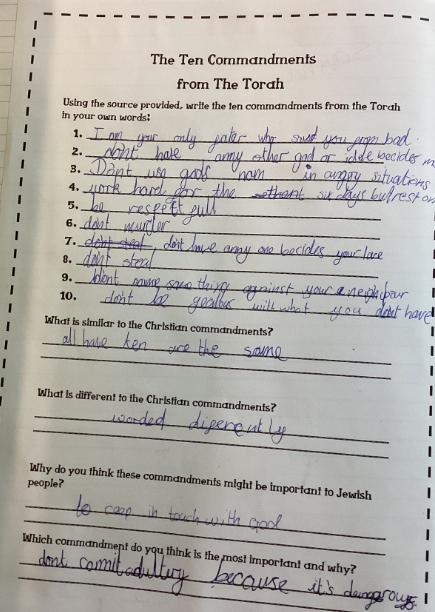 The Ten Commandments
from The Torah
Using the source provided, write the ten commandments from the Torah
in your own words:
1. I am your only who you from bad.
2. dont have anny other god or idole becides m
3. Dont use gods nam in angry situations
4. work hard for the six days but rest on
5. be respetfull
6. dont murder
7. dont have anny one becides your love
8. dont steal
9. dont thing against your neighbour
10. dont be gealous with what you dont have
What is similar to the Christian commandments?
all have ten are the same
What is different to the Christian commandments?
worded diferently
Why do you think these commandments might be important to Jewish
people?
to ceep in touch with God
Which commandment do you think is the most important and why?
dont comit adultury because it's dangerous.